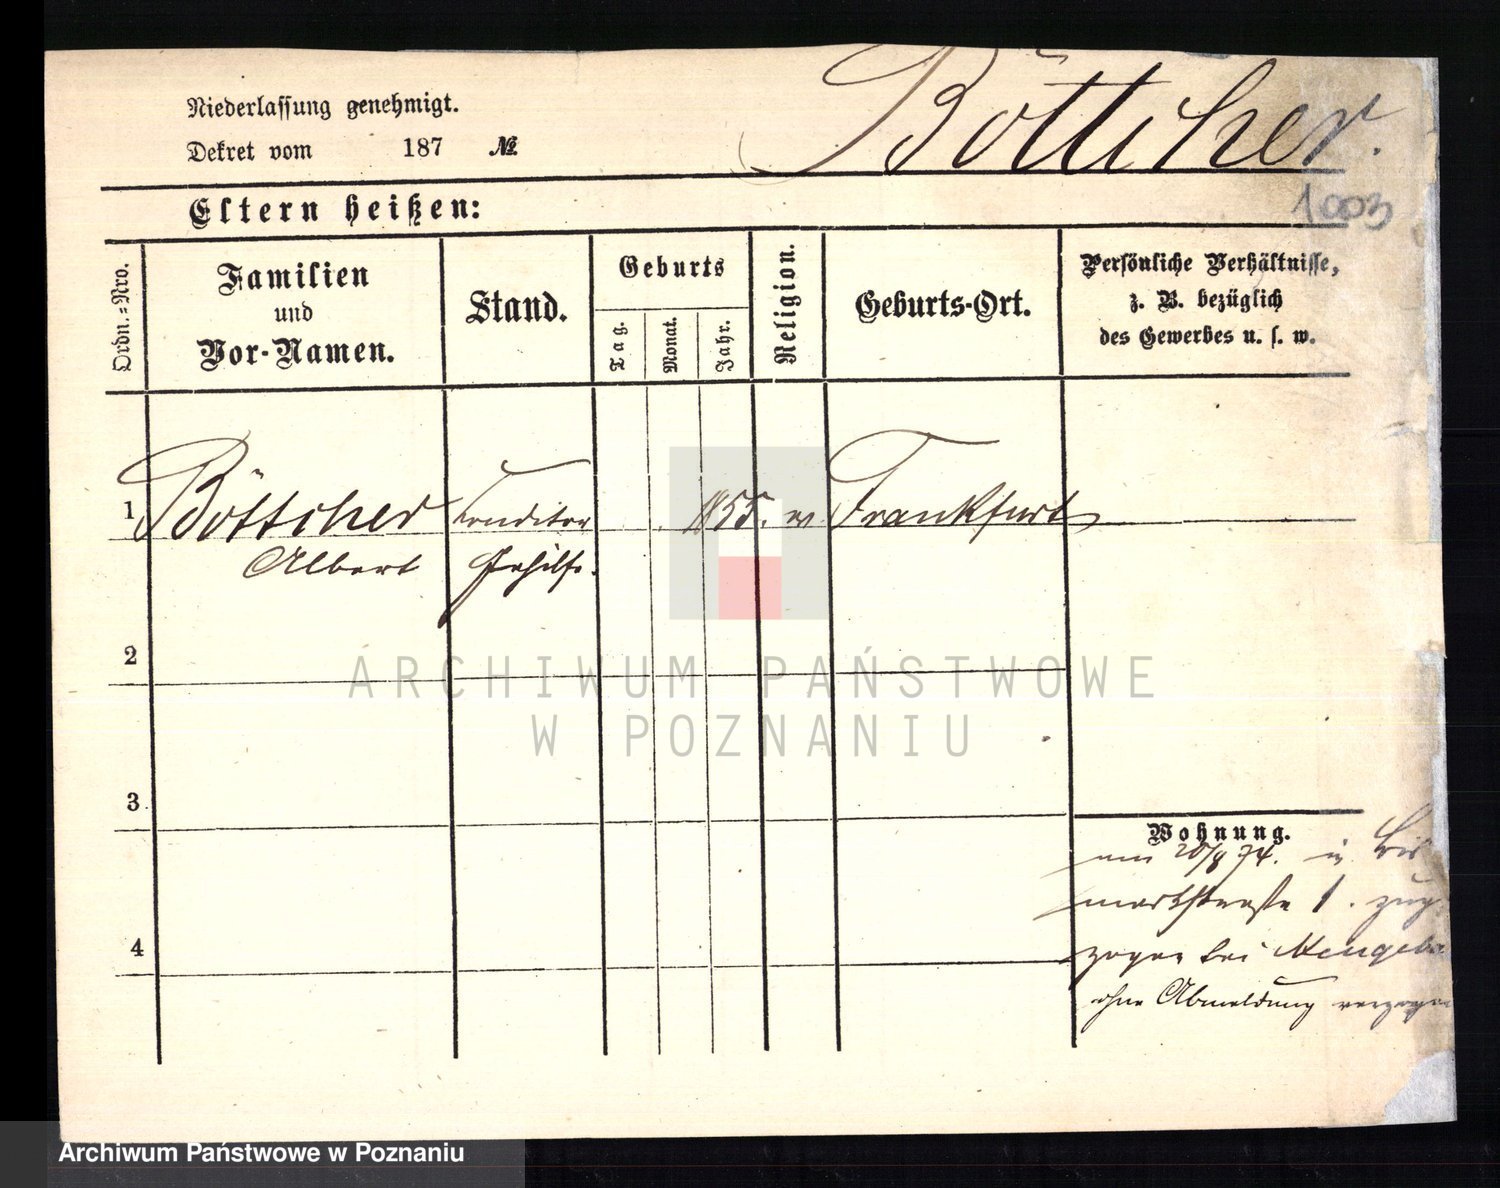 Niederlassung genehmigt.
Dekret vom 187 №
Böttcher.
1003
Eltern heißen:
Ordn.=Nro.
Familien
und
Vor-Namen.
Stand.
Geburts
Tag.
Monat.
Jahr.
Religion.
Geburts-Ort.
Persönliche Verhältnisse,
z. B. bezüglich
des Gewerbes u. s. w.
1 Böttcher Conditor 1855. ev. Frankfurt
Albert Gehilfe.
2
ARCHIWUM PAŃSTWOWE
W POZNANIU
3
Wohnung.
am 20/8 74. in Bis
markstraße 1. zuge
zogen bei
4
ohne Abmeldung verzogen
Archiwum Państwowe w Poznaniu